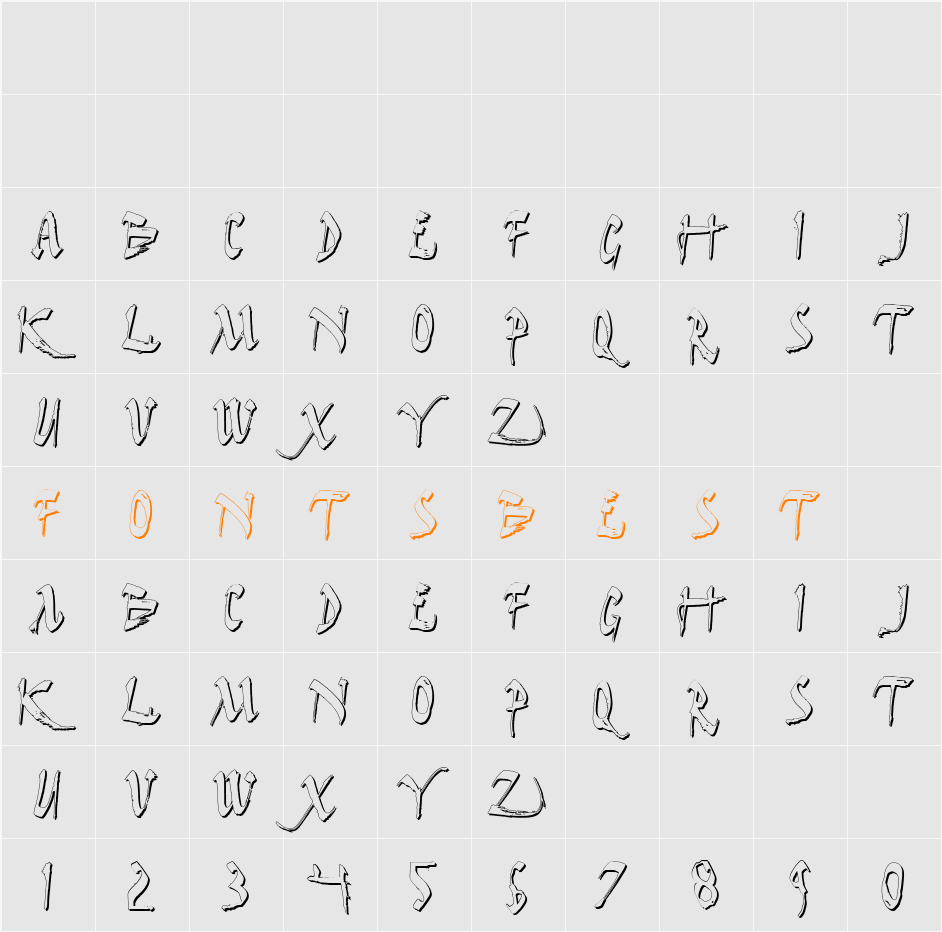 A B C D E F G H I J
K L M N O P Q R S T
U V W X Y Z
F O N T S B E S T
A B C D E F G H I J
K L M N O P Q R S T
U V W X Y Z
1 2 3 4 5 6 7 8 9 0